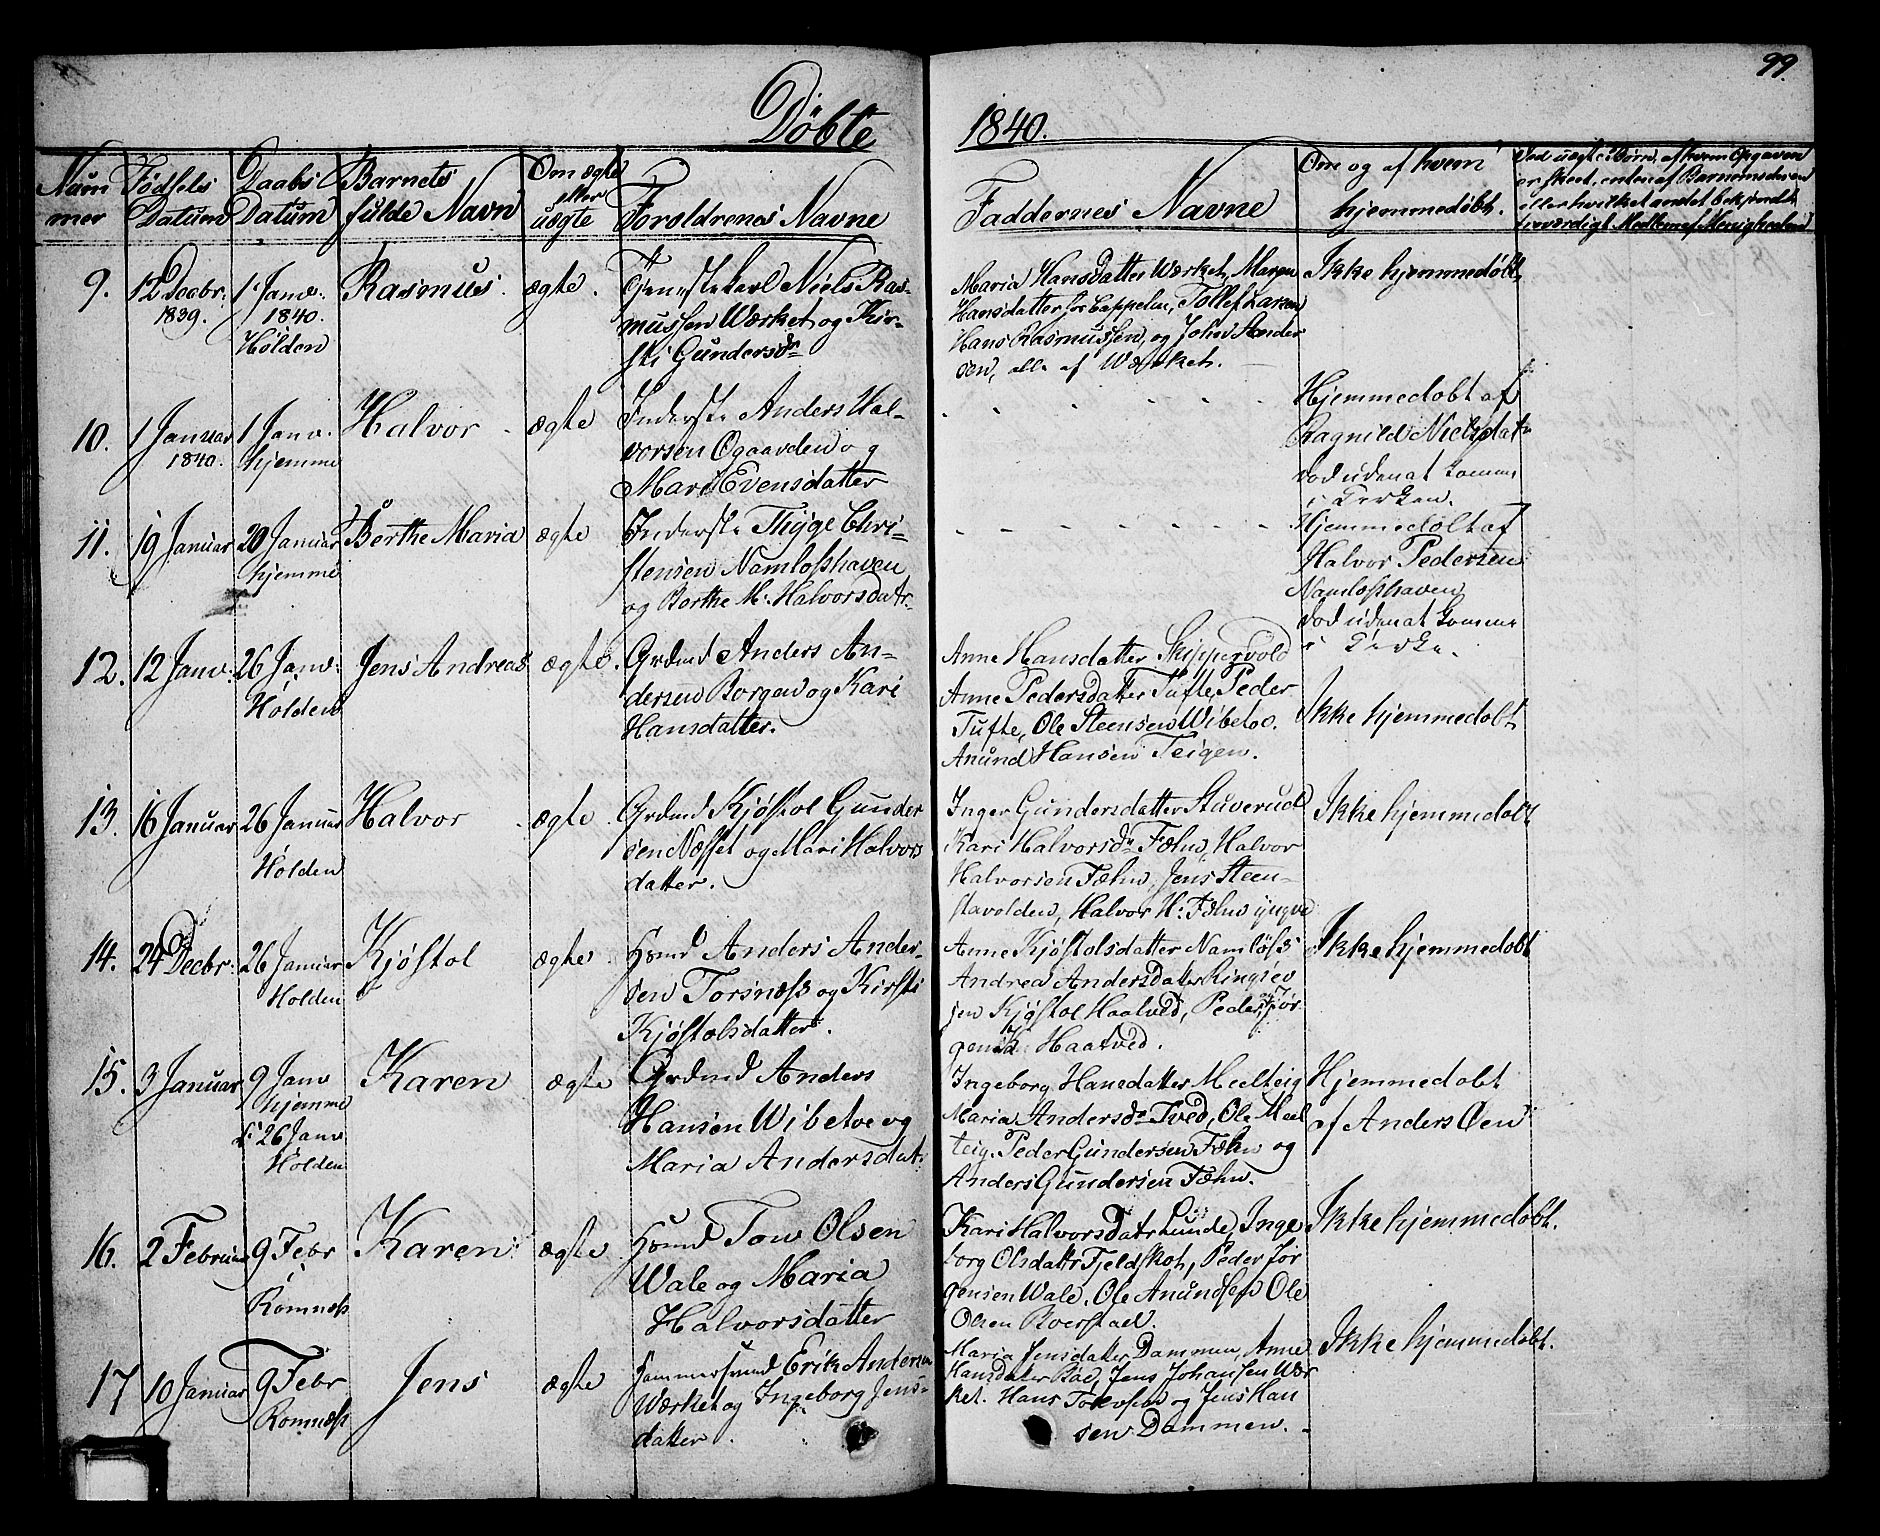 99.
Døbte 1840.
Num
mer
Fødsels
Datum
Daabs
Datum
Barnets
fulde Navn
Om ægte
eller
uægte
Foroldrenes Navne
Faddernes Navne
Om og af hvem
hjemmedøbt.
Ved uægte Børn, af hvem Opgaven
er skeet, enten af Barnemoderen
eller hvilket andet bekjendt
troværdigt Medlem af Menigheden
9.
12 Decbr:
1839.
1 Janv:
1840.
Holden
Rasmus.
ægte.
Tjenestekarl Niels Ras-
mussen Værket og Kir-
sti Gundersdr
Maria Hansdatter Værket, Maren
Hansdatter for Cappelen, Tollef Larsen
Hans Rasmussen, og Johan Ander
sen, alle af Værket.
Ikke hjemmedøbt,
10.
1 Januar
1840.
1 Janv.
hjemme
Halvor
ægte
Inderste Anders Hal-
vorsen Ogaarden og
Mari Evensdatter
Hjemmedobt af
Ragnild Nielsdatr
død uden at komme
i Kirken.
11.
19 Januar
20 Januar
hjemme
Berthe Maria
ægte
Inderste Thyge Chri-
stensen Namloshaven
og Berthe M: Halvorsdatr.
Hjemmedobt af
Halvor Pedersen
Namloshaven
død uden at komme
i Kirke.
12.
12 Janv:
26 Janv:
Holden
Jens Andreas
ægte.
Grdmd Anders An-
dersen Borgen og Kari
Hansdatter.
Anne Hansdatter Skippervold
Anne Pedersdatter Tufte, Peder
Tufte, Ole Steensen Wibetoe.
Anund Hansen Teigen.
Ikke hjemmedobt
13.
16 Januar
26 Januar
Holden
Halvor
ægte.
Grdmd Kjøstol Gunder
sen Næsset og Mari Halvors
datter.
Inger Gundersdatter Stuverud
Kari Halvorsdr Fæhn, Halvor
Halvorsen Fæhn, Jens Steen-
stavolden, Halvor H: Fæhn yngre
Ikke hjemmedobt
14.
24 Decbr:
26 Januar
Holden
Kjøstol
ægte.
Hsmd Anders Ander-
sen Torsnæss og Kirsti
Kjøstolsdatter.
Anne Kjøstolsdatter Namløss
Andrea Andersdatter Ringsev
jen Kjøstol Haatved, Peder Jør
gensen Haatved.
Ikke hjemmedobt
15.
3 Januar
9 Janv
hjemme
d: 26 Janv
Holden
Karen
ægte
Grdmd Anders
Hansen Wibetoe og
Maria Andersdat.
Ingeborg Hansdatter Meelteig
Maria Andersdr Tved, Ole Meel
teig. Peder Gundersen Fæhn og
Anders Gundersen Fæhn.
Hjemmedobt
af Anders Øen
16.
2 Februar
9 Febr
Romnæs
Karen
ægte.
Hsmd Tow Olsen
Wale og Maria
Halvorsdatter
Kari Halvorsdatr Lunde, Inge
borg Olsdattr Fjeldskot, Peder Jør
gensen Wale. Ole Anundsen Ole
Olsen Roerstad.
Ikke hjemmedobt.
17
10 Januar
9 Febr
Romnæs
Jens
ægte
Hammersmd Erik Andersen
Værket og Ingeborg Jens-
datter.
Maria Jensdatter Dammen, Anne
Hansdatter Bøe, Jens Johansen Wær
ket. Hans og Jens Han
sen Dammen.
Ikke hjemmedobt.